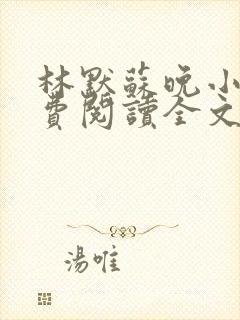 林默蘇晚小
費閱讀全文
湯唯